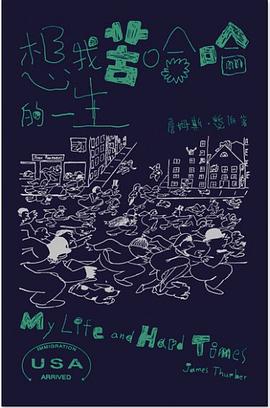 想我苦哈哈
的一生
詹姆斯・瑟伯著
My Life and Hard Times
James Thurber
IMMIGRATION
USA
ARRIVED